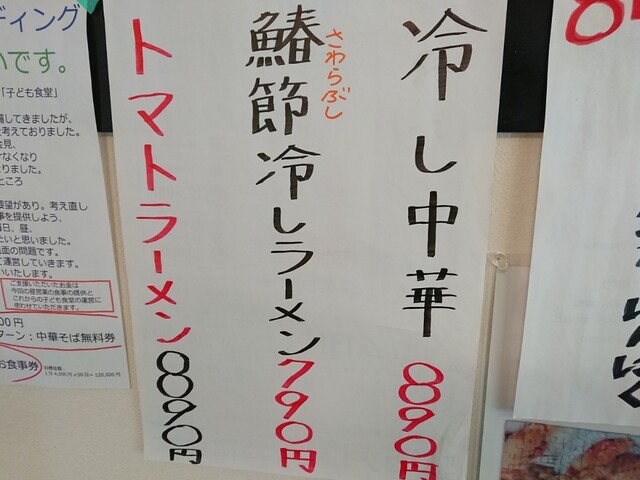 冷し中華
890円
さわらぶし
鰆節冷しラーメン
790円
トマトラーメン
890円
ディング
いです。
「子ども食堂」
してきましたが、
考えておりました。
なくなり
りました。
ところ
要望があり。考え直し
事を提供しよう、
毎日、昼、
たいと思いました。
面の問題です。
て運営していきます。
いいたします。
ご支援いただいたお金は
今回の昼営業の食事の提供と
これからの子ども食堂の運営に
使わせていただきます。
00円
ターン：中華そば無料券
お食事券
目標金額：
1日4,000円×30日＝120,000円